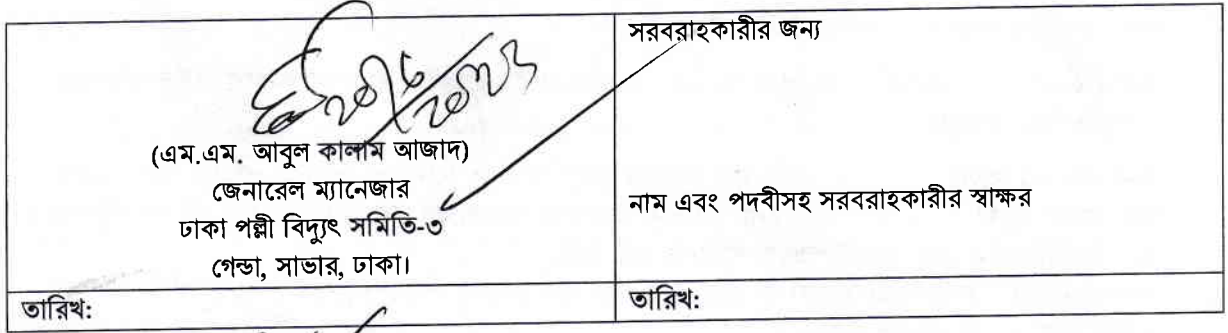 (এম.এম. আবুল কালাম আজাদ)
জেনারেল ম্যানেজার
ঢাকা পল্লী বিদ্যুৎ সমিতি-৩
গেন্ডা, সাভার, ঢাকা।
তারিখ:
সরবরাহকারীর জন্য
নাম এবং পদবীসহ সরবরাহকারীর স্বাক্ষর
তারিখ: